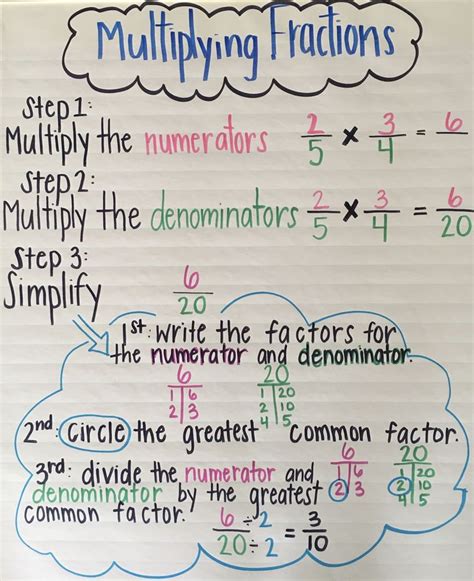 Multiplying Fractions
Step 1:
Multiply the numerators 2/5 × 3/4 = 6
Step 2:
Multiply the denominators 2/5 × 3/4 = 6/20
Step 3:
Simplify 6/20
1st: write the factors for
the numerator and denominator.
6 20
1 6 1 20
2 3 2 10
4 5
2nd: Circle the greatest common factor.
3rd: divide the numerator and
denominator by the greatest
common factor.
6 20
1 6 1 20
2 3 2 10
4 5
6 ÷ 2 = 3
20 ÷ 2 10